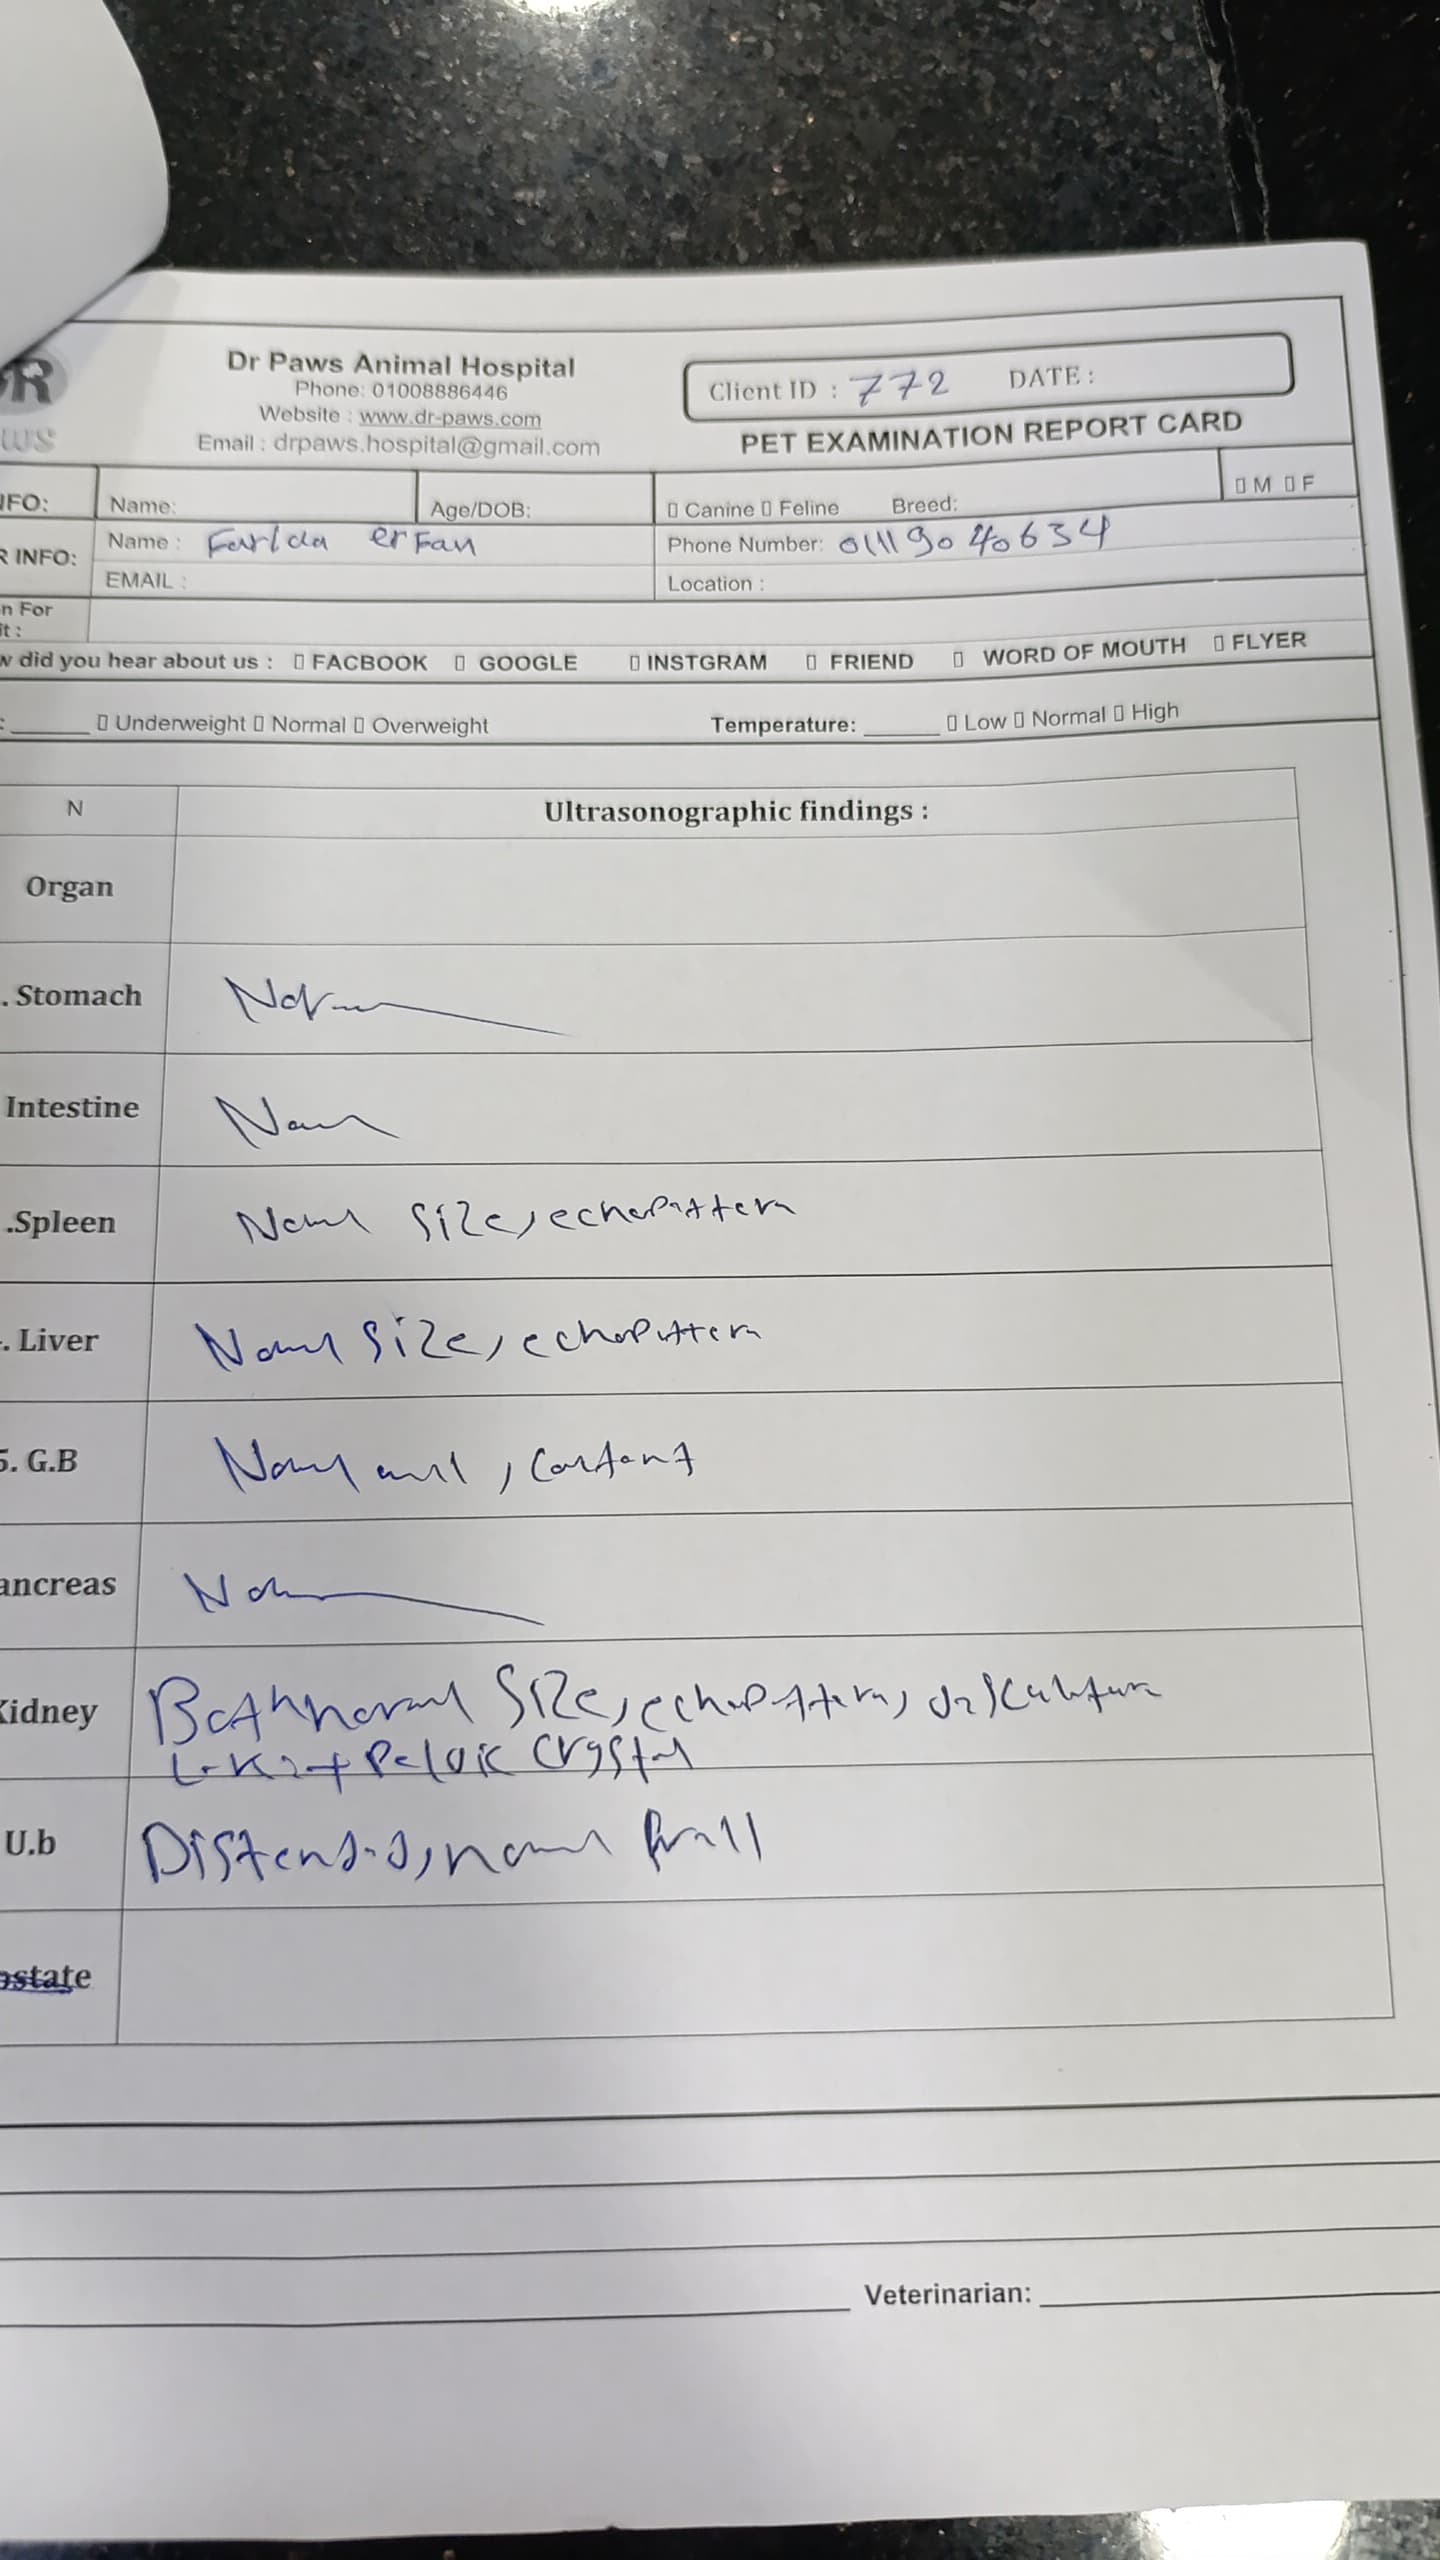 R
WS
Dr Paws Animal Hospital
Phone: 01008886446
Website : www.dr-paws.com
Email : drpaws.hospital@gmail.com
Client ID : 772 DATE :
PET EXAMINATION REPORT CARD
NFO: Name: Age/DOB: ▯ Canine ▯ Feline Breed: ▯ M ▯ F
R INFO: Name : Farida erFan Phone Number: 01119040634
EMAIL : Location :
n For
it :
w did you hear about us : ▯ FACBOOK ▯ GOOGLE ▯ INSTGRAM ▯ FRIEND ▯ WORD OF MOUTH ▯ FLYER
: ______ ▯ Underweight ▯ Normal ▯ Overweight Temperature: ______ ▯ Low ▯ Normal ▯ High
N Ultrasonographic findings :
Organ
. Stomach Normal
Intestine Normal
.Spleen Normal Size, echopattern
. Liver Normal Size, echopattern
5. G.B Normal wall, Content
ancreas Normal
Kidney Both normal Size, echopattern,
Pelvic Crystal
U.b Distended, normal wall
ostate
Veterinarian: